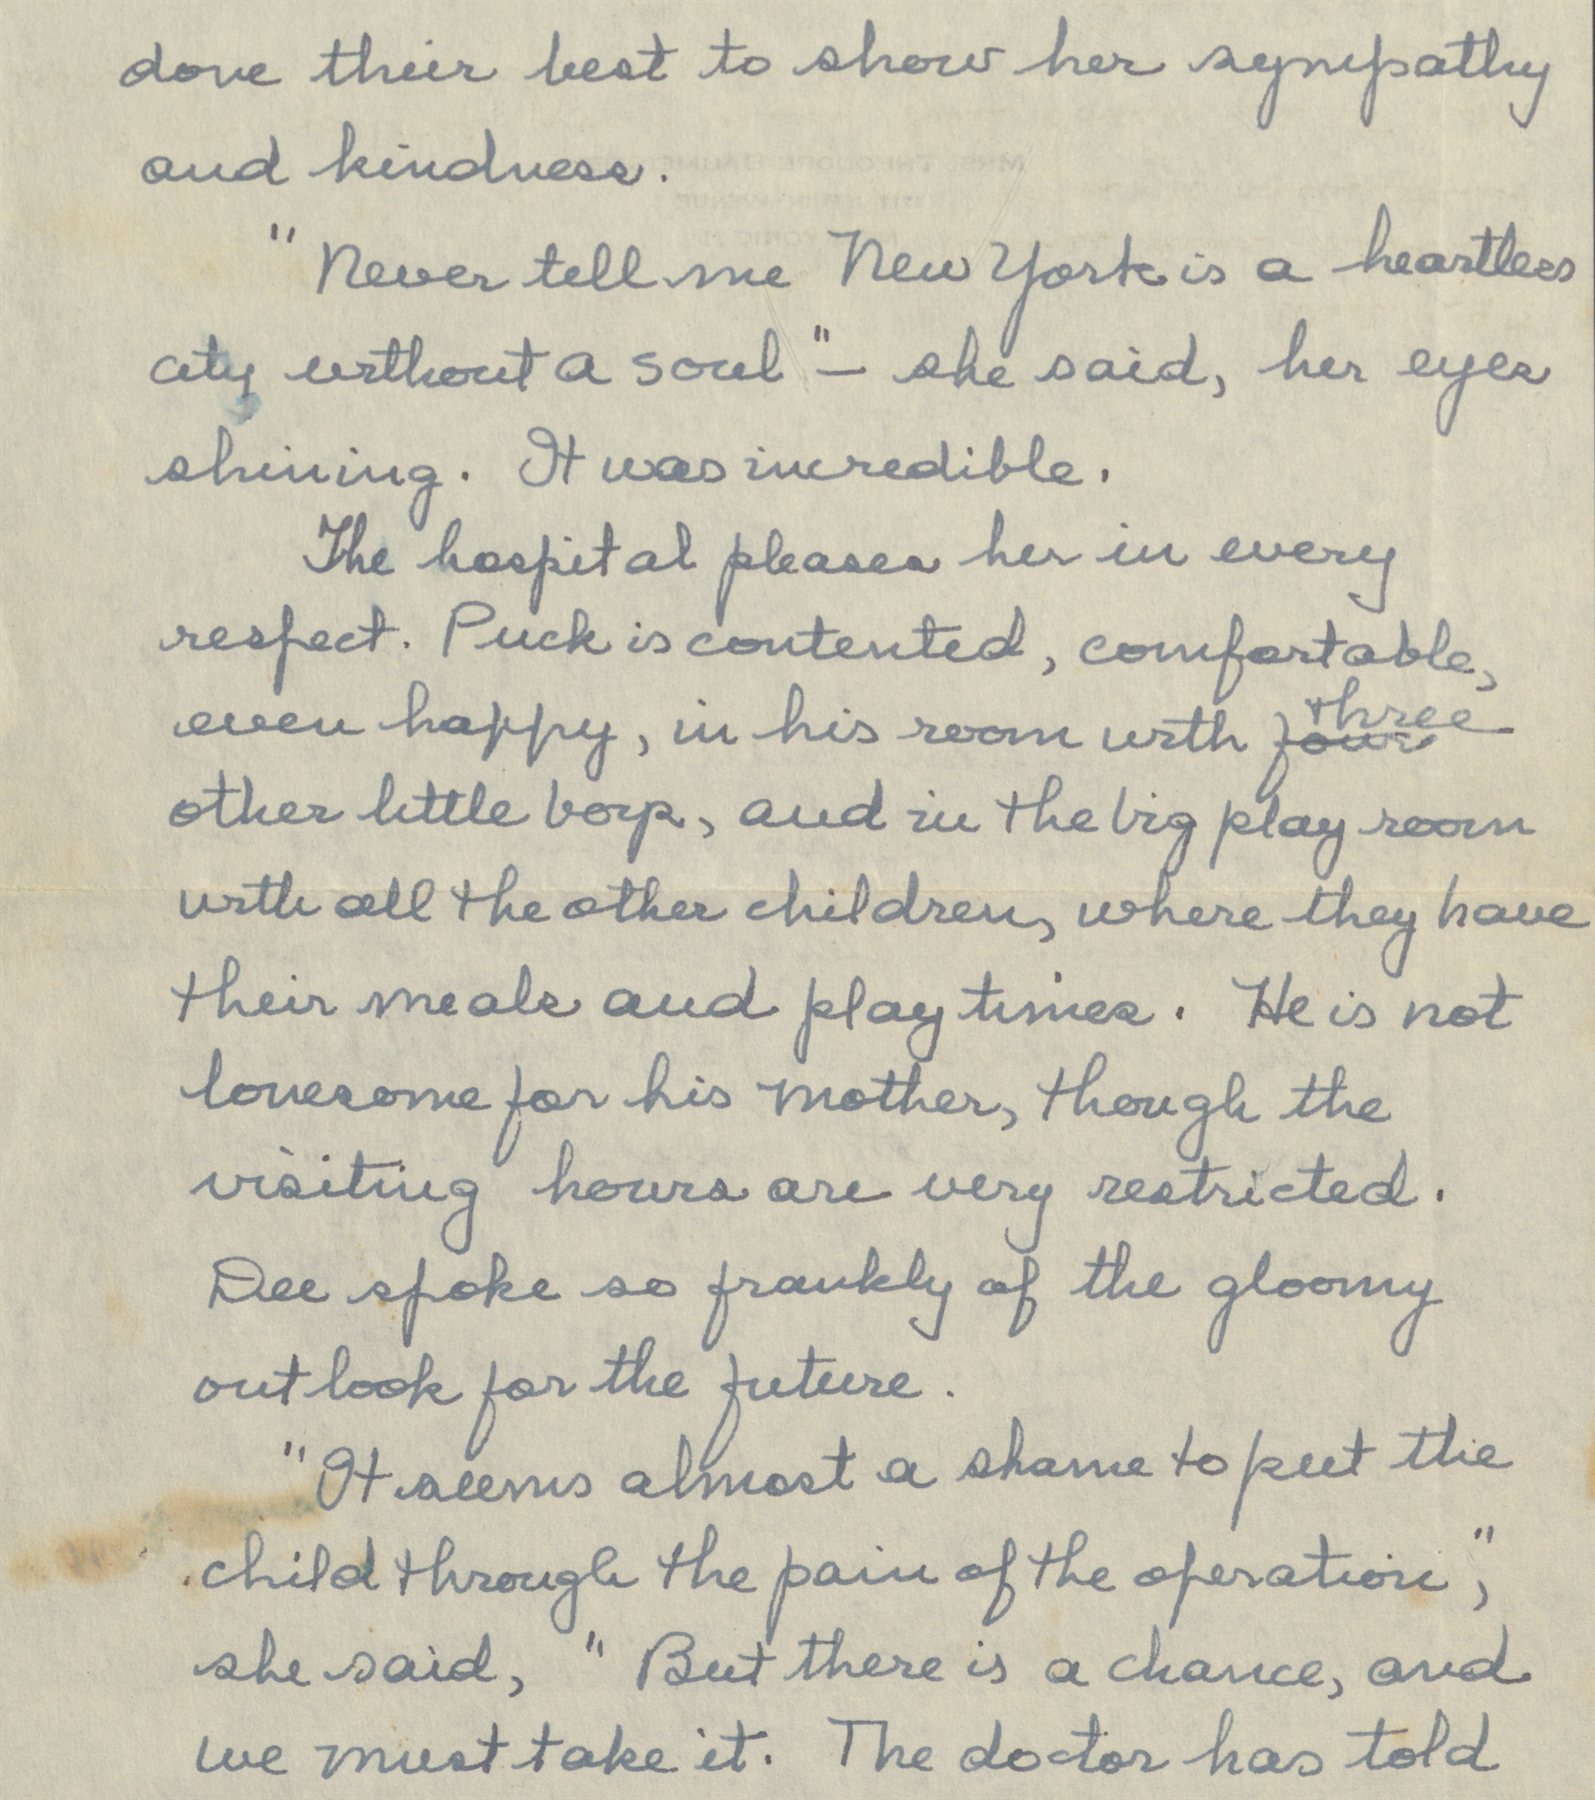 done their best to show her sympathy
and kindness.
"Never tell me New York is a heartless
city without a soul" – she said, her eyes
shining. It was incredible.
The hospital pleases her in every
respect. Puck is contented, comfortable,
even happy, in his room with four three
other little boys, and in the big play room
with all the other children, where they have
their meals and play times. He is not
lonesome for his mother, though the
visiting hours are very restricted.
Dee spoke so frankly of the gloomy
outlook for the future.
"It seems almost a shame to put the
child through the pain of the operation",
she said, "But there is a chance, and
we must take it. The doctor has told